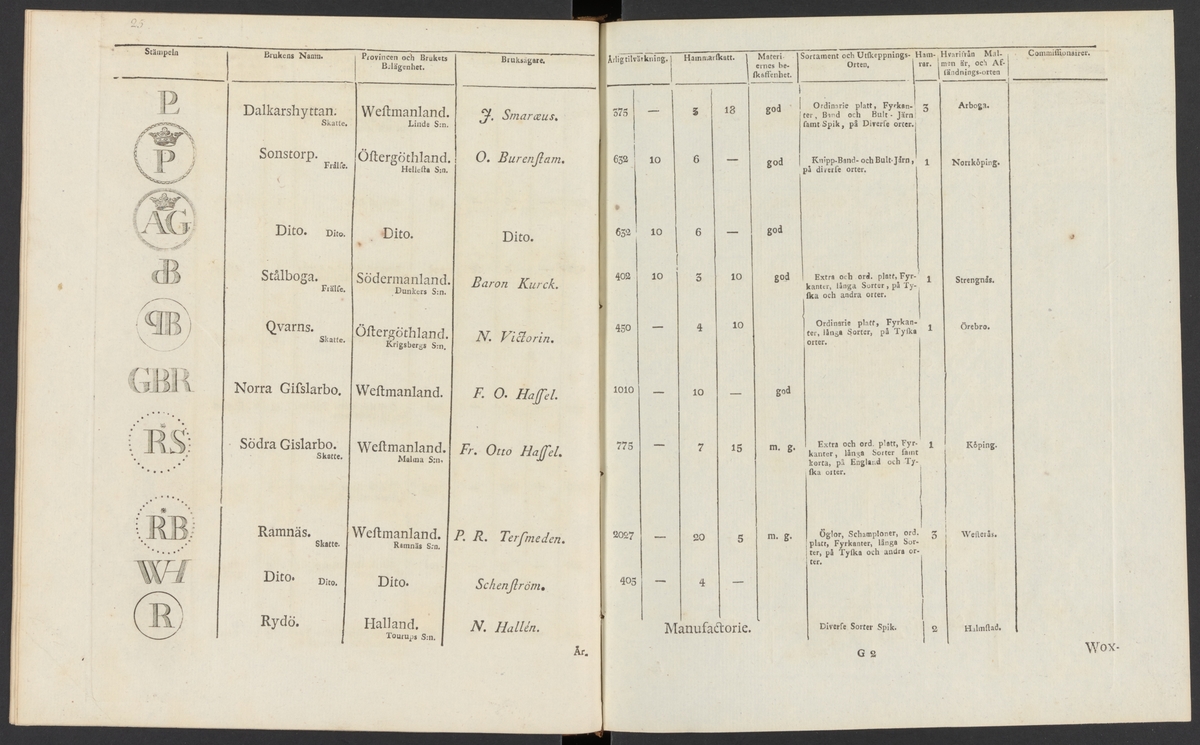 23.
Stämpeln | Brukens Namn. | Provincen och Brukets Belägenhet. | Bruksägare. | Årlig tilvärkning. | Hammarskatt. | Materiernes beskaffenhet. | Sortament och Utskeppnings-Orten. | Hamrar. | Hvarifrån Malmen är, och Afsändnings-orten | Commissionairer.
P | Dalkarshyttan. Skatte. | Weſtmanland. Linde S:n. | J. Smaræus. | 375 | — | 3 | 18 | god | Ordinarie platt, Fyrkanter, Band och Bult-Järn ſamt Spik, på Diverſe orter. | 3 | Arboga.
P | Sonstorp. Frälſe. | Öſtergöthland. Helleſta S:n. | O. Burenſtam. | 632 | 10 | 6 | — | god | Knipp-Band- och Bult-Järn, på diverſe orter. | 1 | Norrköping.
AG | Dito. Dito. | Dito. | Dito. | 632 | 10 | 6 | — | god
B | Stålboga. Frälſe. | Södermanland. Dunkers S:n. | Baron Kurck. | 402 | 10 | 3 | 10 | god | Extra och ord. platt, Fyrkanter, långa Sorter, på Tyſka och andra orter. | 1 | Strengnäs.
B | Qvarns. Skatte. | Öſtergöthland. Krigsbergs S:n. | N. Victorin. | 450 | — | 4 | 10 | Ordinarie platt, Fyrkanter, långa Sorter, på Tyſka orter. | 1 | Örebro.
GBR | Norra Giſslarbo. | Weſtmanland. | F. O. Haſſel. | 1010 | — | 10 | — | god
RS | Södra Gislarbo. Skatte. | Weſtmanland. Malma S:n. | Fr. Otto Haſſel. | 775 | — | 7 | 15 | m. g. | Extra och ord. platt, Fyrkanter, långa Sorter ſamt korta, på England och Tyſka orter. | 1 | Köping.
RB | Ramnäs. Skatte. | Weſtmanland. Ramnäs S:n. | P. R. Terſmeden. | 2027 | — | 20 | 5 | m. g. | Öglor, Schamploner, ord. platt, Fyrkanter, långa Sorter, på Tyſka och andra orter. | 3 | Weſterås.
WH | Dito. Dito. | Dito. | Schenſtröm. | 405 | — | 4 | —
R | Rydö. | Halland. Tourups S:n. | N. Hallén. | Manufactorie. | Diverſe Sorter Spik. | 2 | Halmſtad.
År.
G 2
Wox-